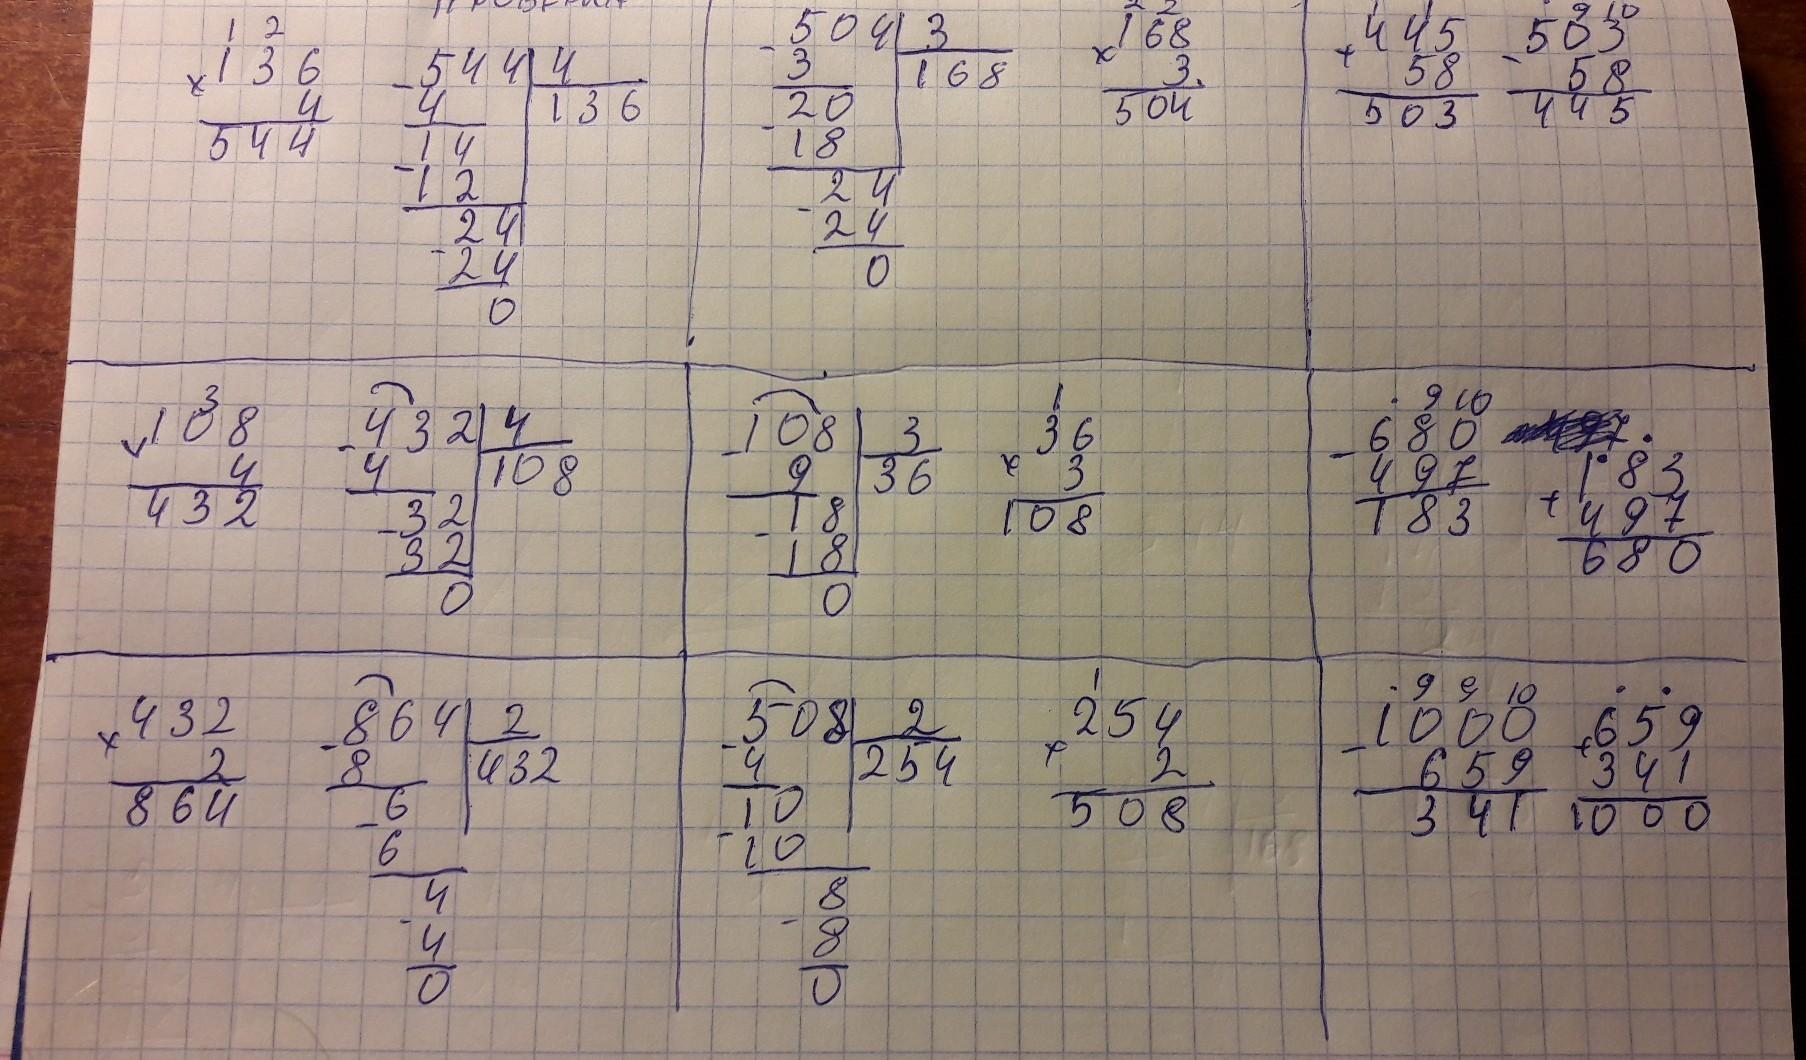 ПРОВЕРКА
1 2
×136
4
544
-544 | 4
4 136
14
-12
24
-24
0
-504 | 3
3 168
20
-18
24
-24
0
2 2
×168
3
504
1 1
+445
58
503
9 10
-503
58
445
3
×108
4
432
-432 | 4
4 108
-32
32
0
-108 | 3
9 36
18
-18
0
1
×36
3
108
. 9 10
-680
497
183
183
+497
680
×432
2
864
-864 | 2
8 432
-6
6
4
-4
0
-508 | 2
4 254
10
-10
8
-8
0
1
×254
2
508
. 9 9 10
-1000
659
341
. .
+659
341
1000